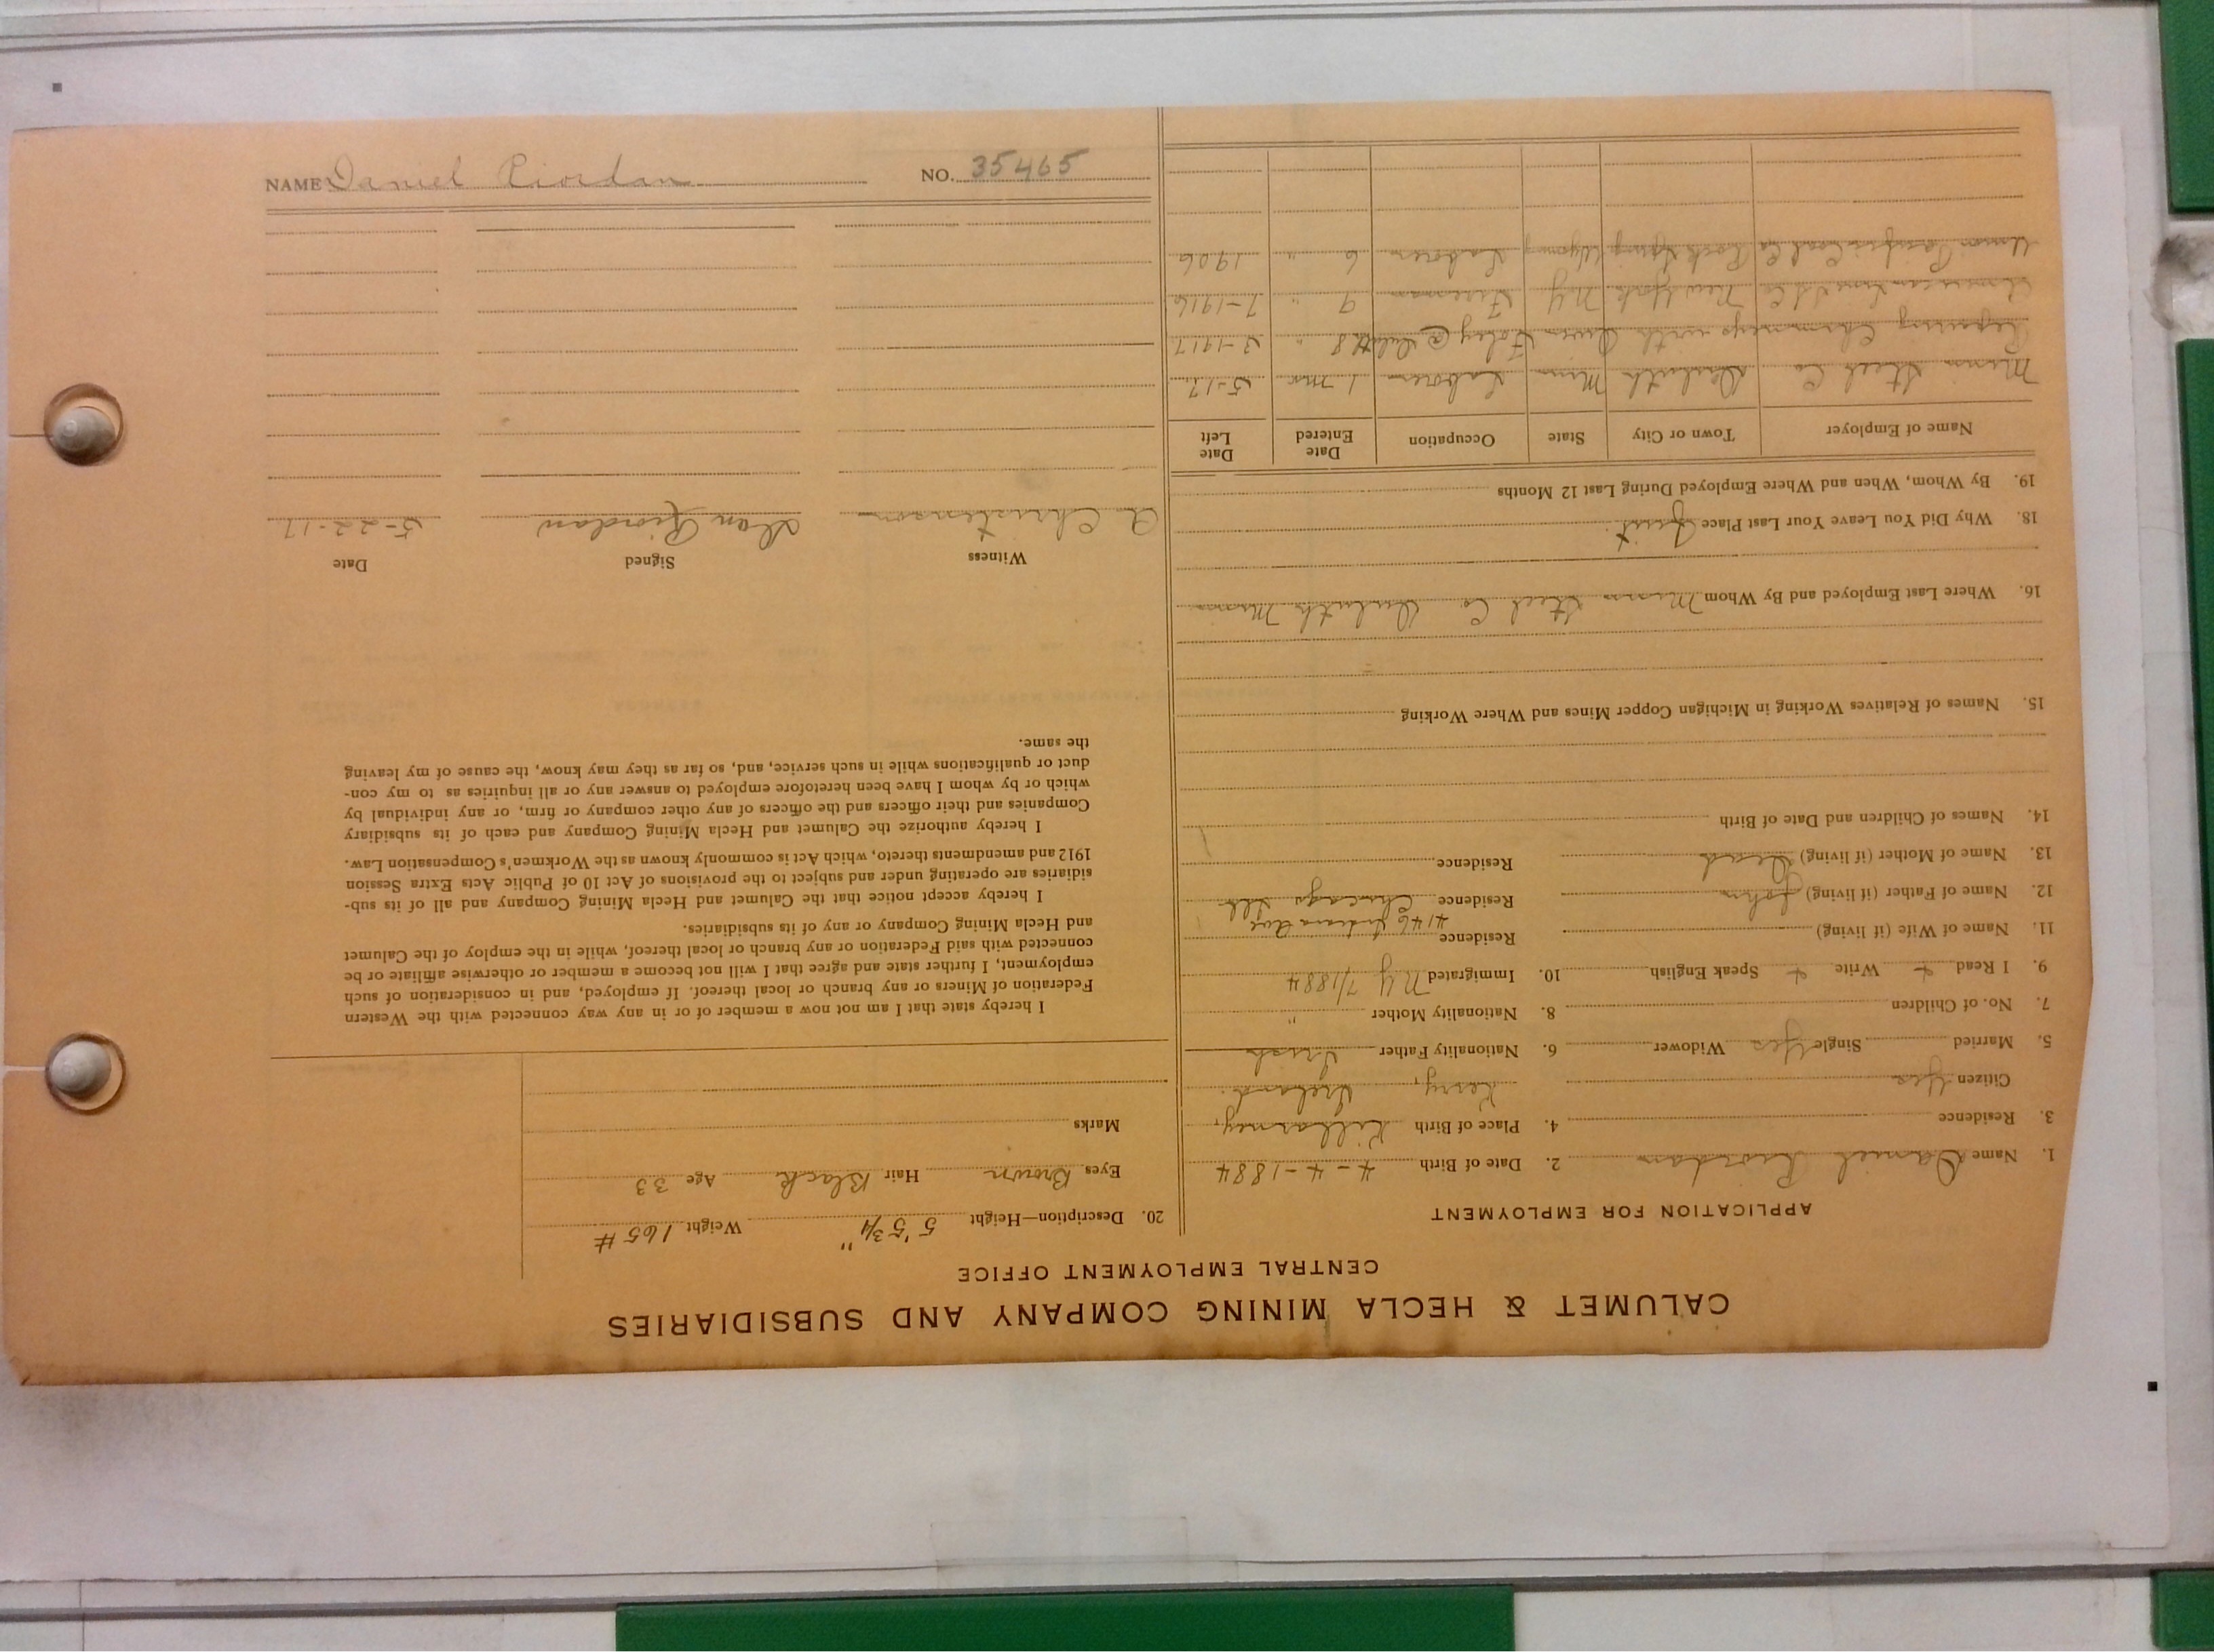 CALUMET & HECLA MINING COMPANY AND SUBSIDIARIES
CENTRAL EMPLOYMENT OFFICE
APPLICATION FOR EMPLOYMENT
1. Name Daniel Riordan 2. Date of Birth 4-4-1884
3. Residence 4. Place of Birth Killarney,
Citizen Yes Kerry, Ireland.
5. Married Single Yes Widower 6. Nationality Father Irish
7. No. of Children 8. Nationality Mother "
9. I Read + Write + Speak English 10. Immigrated N.Y 7/1884
11. Name of Wife (if living) Residence
4146 Indiana Ave
12. Name of Father (if living) John Residence Chicago Ill
13. Name of Mother (if living) Dead Residence
14. Names of Children and Date of Birth
15. Names of Relatives Working in Michigan Copper Mines and Where Working
16. Where Last Employed and By Whom Minn Steel Co Duluth Minn
18. Why Did You Leave Your Last Place Quit.
19. By Whom, When and Where Employed During Last 12 Months
Name of Employer Town or City State Occupation Date Entered Date Left
Minn Steel Co Duluth Minn Laborer 1 mo. 5-17
Repairing Chimneys with Owen Foley @ Duluth 8 " 3-1917
American Co New York N.Y Fireman 9 " 7-1916
Union Pacific Coal Co Rock Spring Wyoming Laborer 6 " 1906
20. Description—Height 5' 5 3/4" Weight 165 #
Eyes Brown Hair Black Age 33
Marks
I hereby state that I am not now a member of or in any way connected with the Western
Federation of Miners or any branch or local thereof. If employed, and in consideration of such
employment, I further state and agree that I will not become a member or otherwise affiliate or be
connected with said Federation or any branch or local thereof, while in the employ of the Calumet
and Hecla Mining Company or any of its subsidiaries.
I hereby accept notice that the Calumet and Hecla Mining Company and all of its sub-
sidiaries are operating under and subject to the provisions of Act 10 of Public Acts Extra Session
1912 and amendments thereto, which Act is commonly known as the Workmen's Compensation Law.
I hereby authorize the Calumet and Hecla Mining Company and each of its subsidiary
Companies and their officers and the officers of any other company or firm, or any individual by
which or by whom I have been heretofore employed to answer any or all inquiries as to my con-
duct or qualifications while in such service, and, so far as they may know, the cause of my leaving
the same.
Witness Signed Date
A. Christenson Dan Riordan 5-22-17
NAME Daniel Riordan NO. 35465